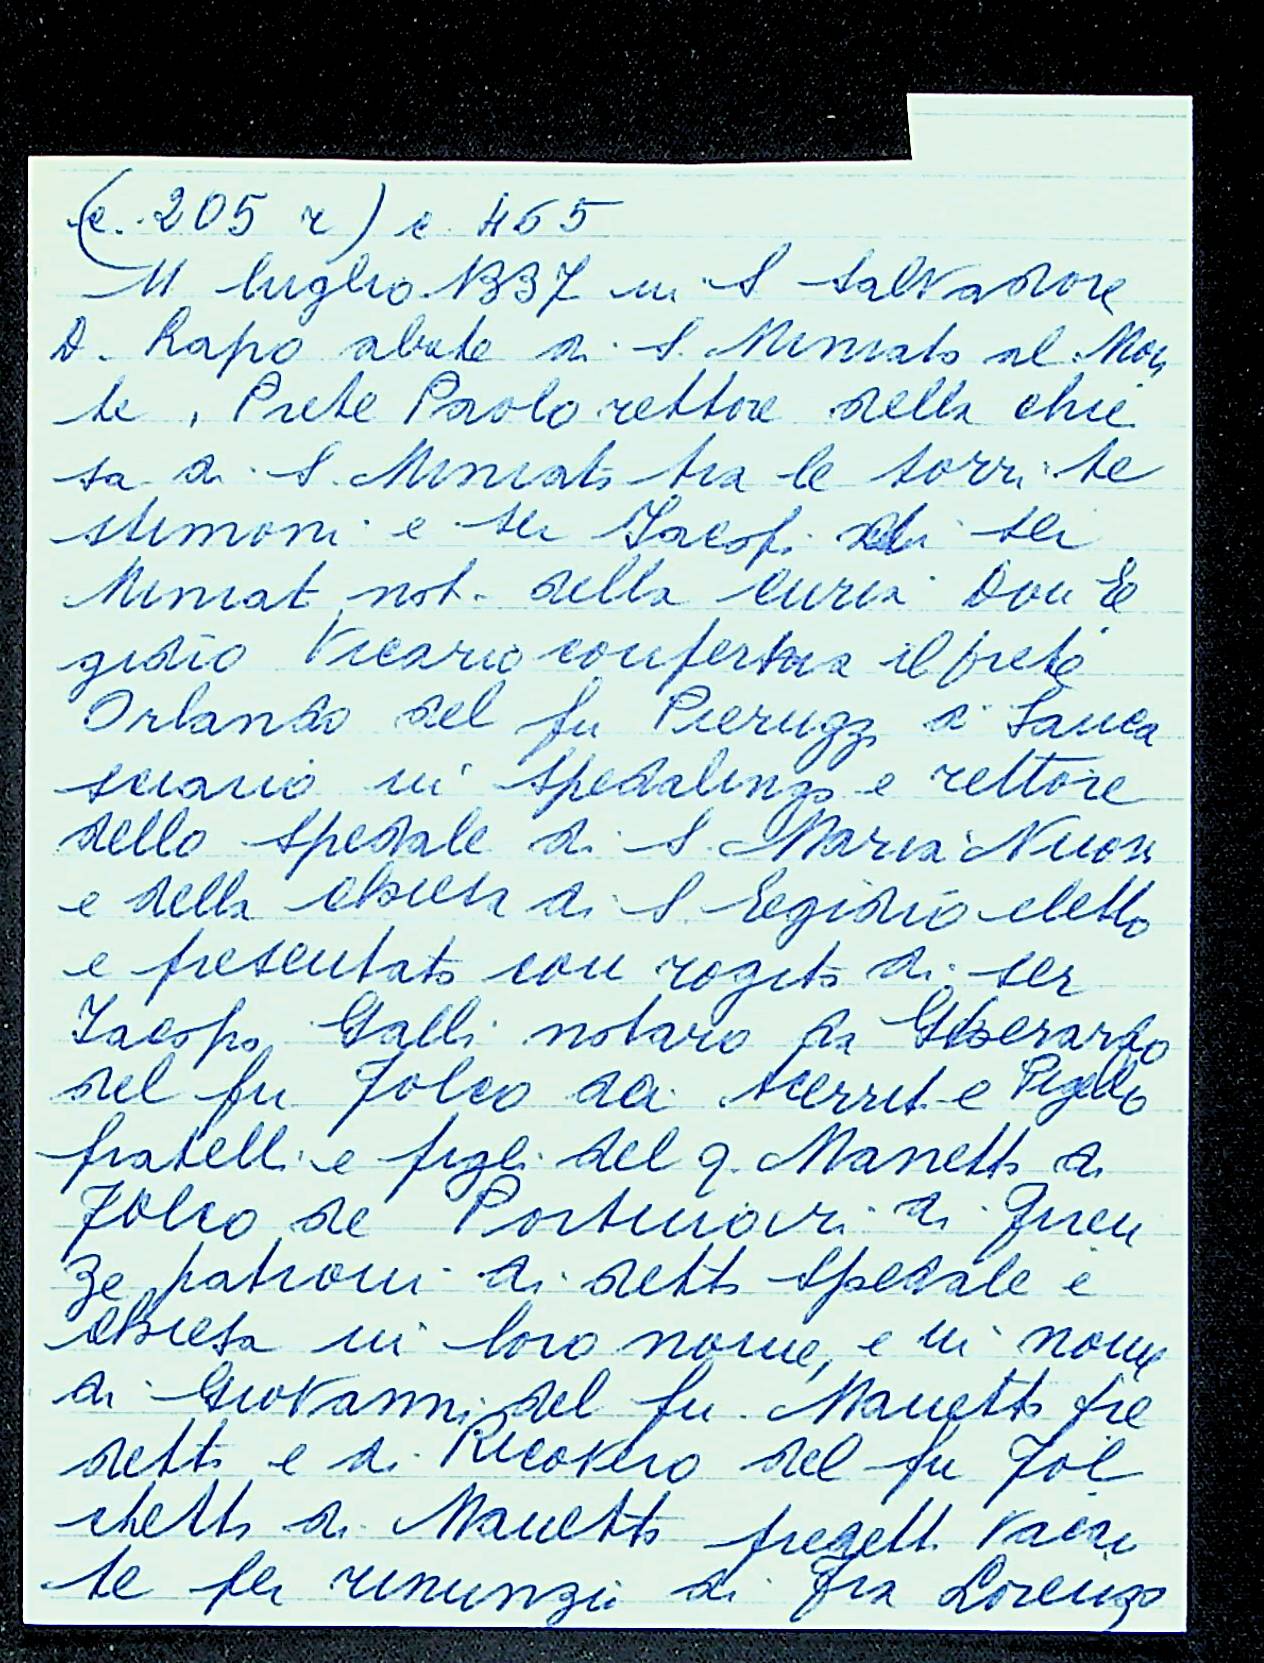 (c. 205 r) c. 465
11 luglio 1337 in S Salvadore
D. Lapo abate di S. Miniato al Mon
te, Prete Paolo rettore della chie
sa di S. Miniato tra le torri te
stimoni e ser Jacopi di ser
Miniat not. della curia Don E
gidio Vicario conferma il prete
Orlando del fu Pieruzzi di Sanca
sciano in Spedalingo e rettore
dello spedale di S. Maria Nuova
e della chiesa di S Eegidio eletto
e presentato con rogito di ser
Jacopo Galli notaro da Gherardo
del fu Folco dei e Pigello
fratelli e figli del q. Manetto di
Folco de Portinari di Firen
ze patroni di detto Spedale e
chiesa in loro nome, e in nome
di Giovanni del fu Manetto pre
detto e di Ricovero del fu Fol
chetto di Manetto predett. vacan
te per renunzia di Fra Lorenzo